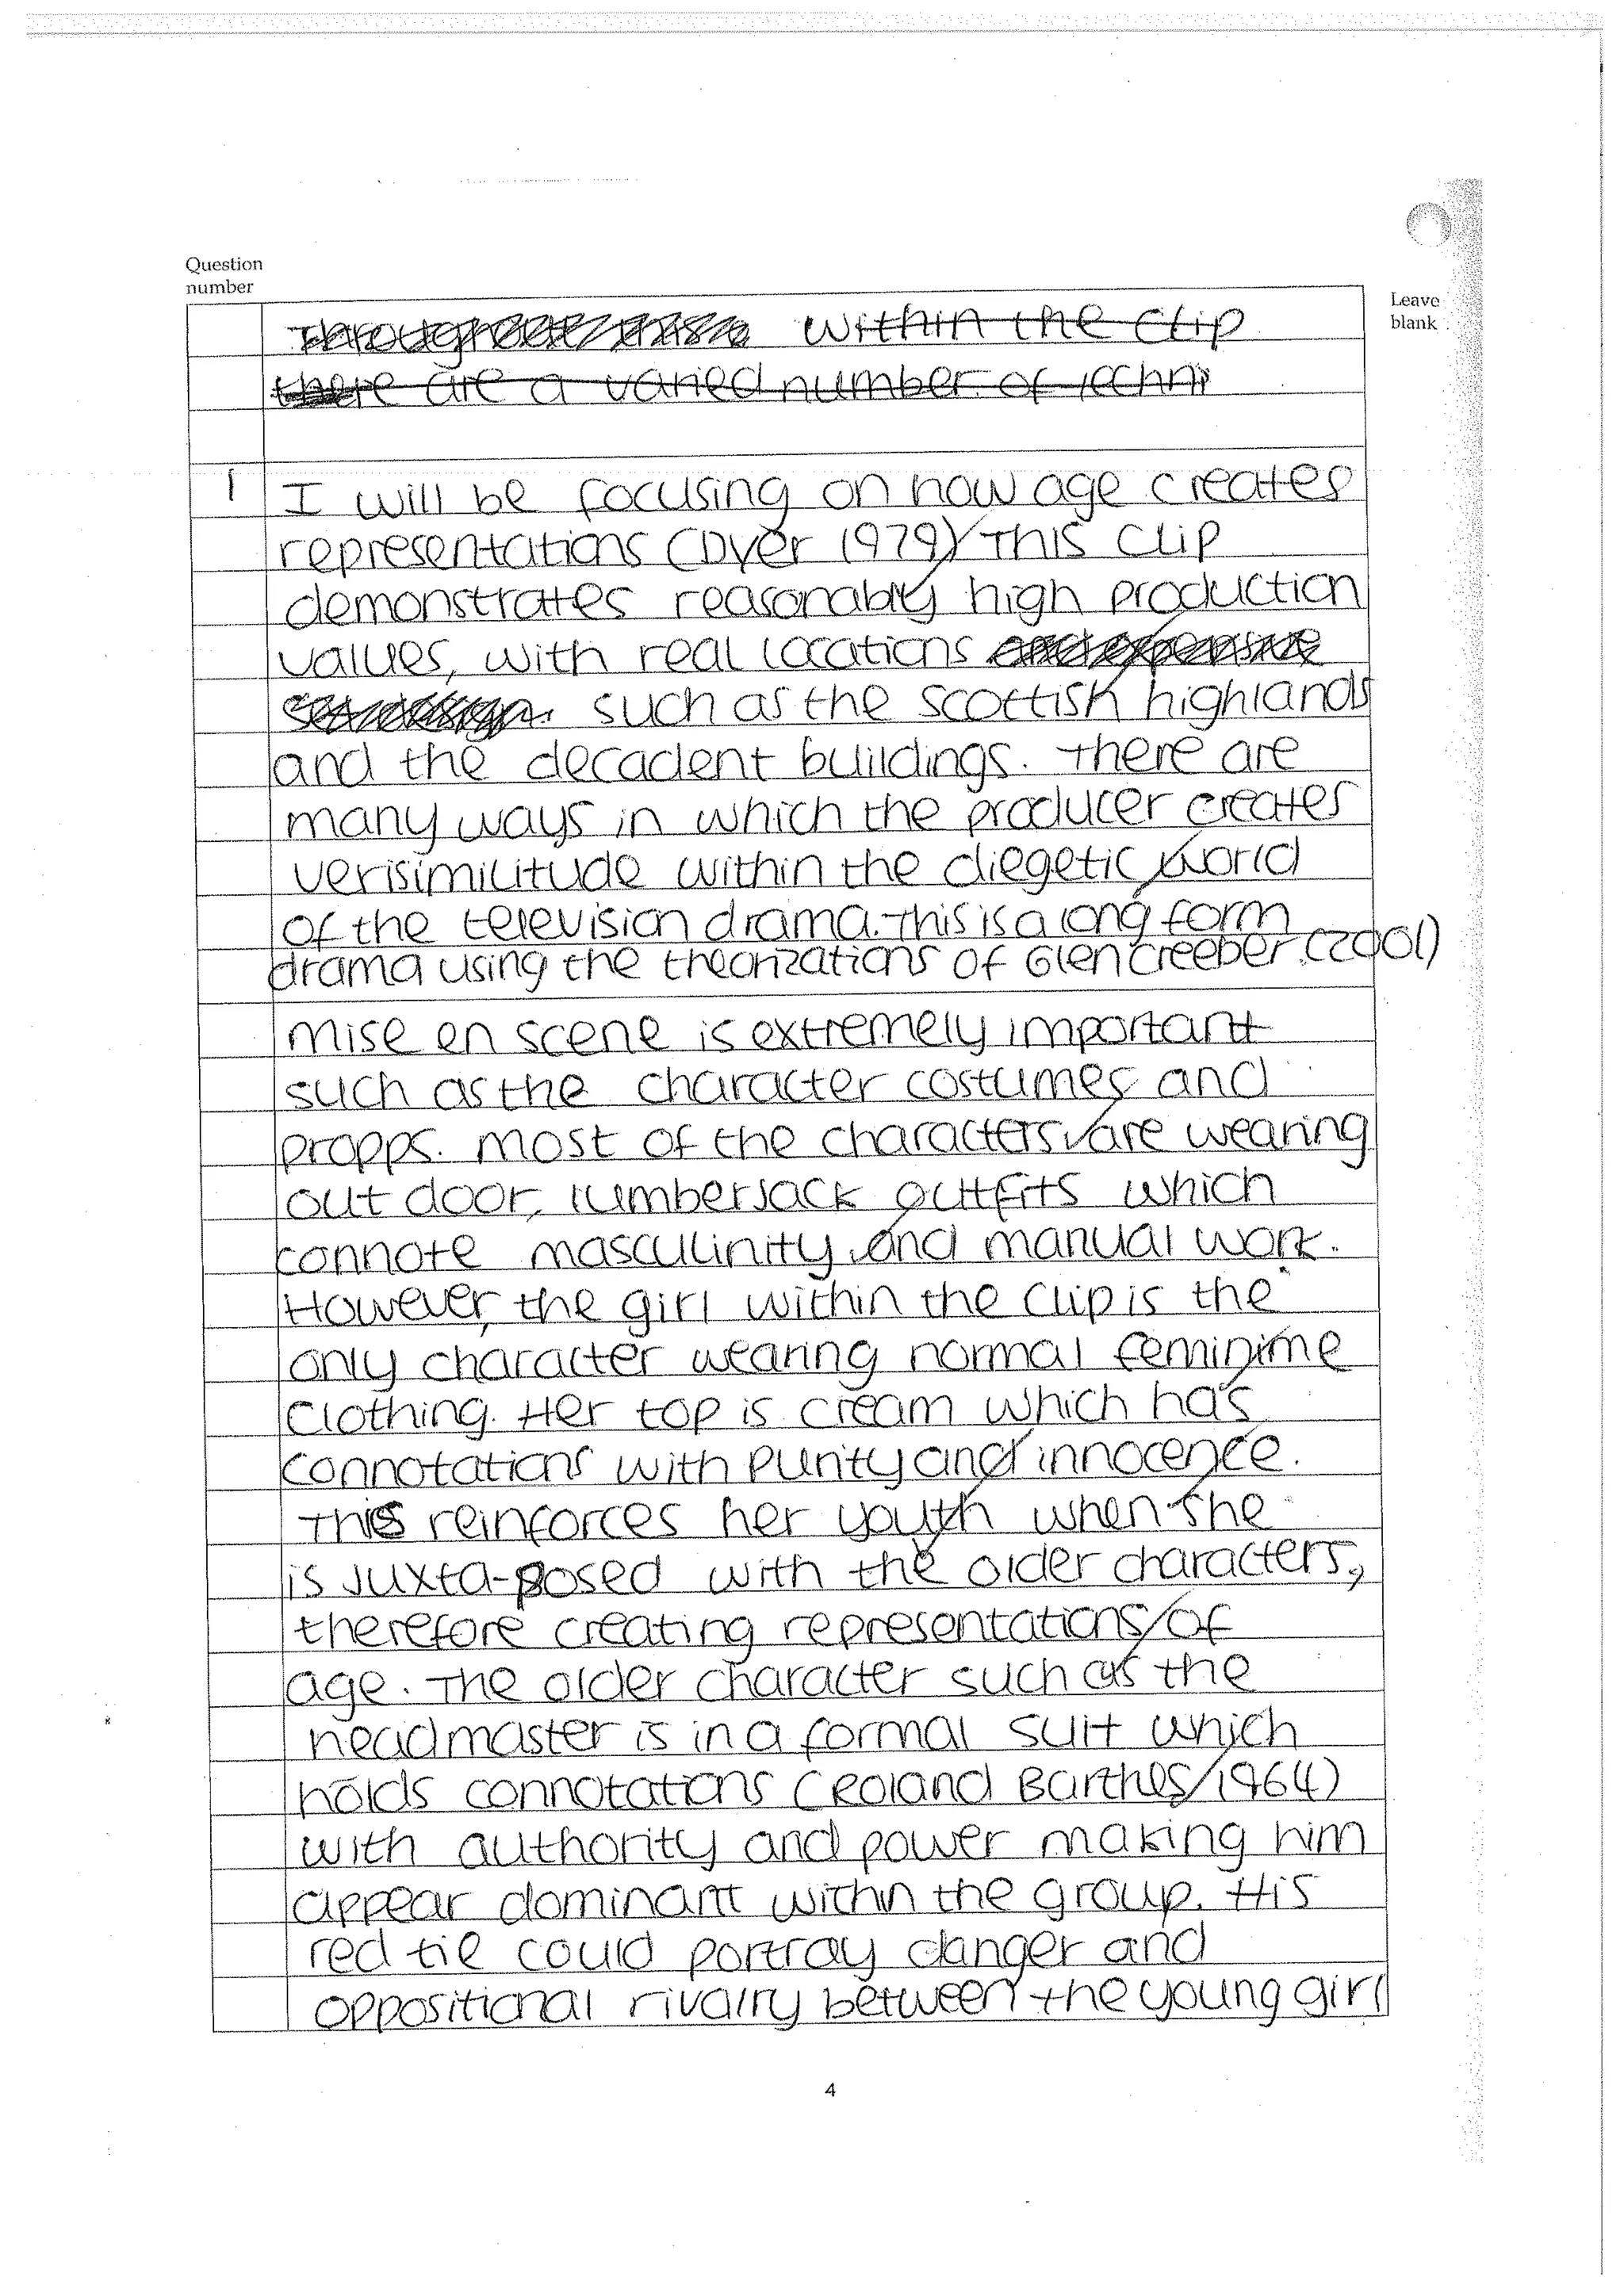 Question
number
Leave
blank
within the clip
there are a varied number of techni
1 I will be focusing on how age creates
representations (Dyer 1979) This clip
demonstrates reasonably high production
values, with real locations
such as the scottish highlands
and the decadent buildings. There are
many ways in which the producer creates
verisimilitude within the diegetic world
of the television drama. This is a long form
drama using the theorizations of Glen Creeber (2001)
mise en scene is extremely important
such as the character costumes and
propps. most of the characters are wearing
out door, lumberjack outfits which
connote masculinity and manual work.
However, the girl within the clip is the
only character wearing normal feminime
clothing. Her top is cream which has
connotations with purity and innocence.
This reinforces her youth when she
is juxta-posed with the older characters,
therefore creating representations of
age. The older character such as the
headmaster is in a formal suit which
holds connotations (Roland Barthes 1964)
with authority and power making him
appear dominant within the group. His
red tie could portray danger and
oppositional rivalry between the young girl
4